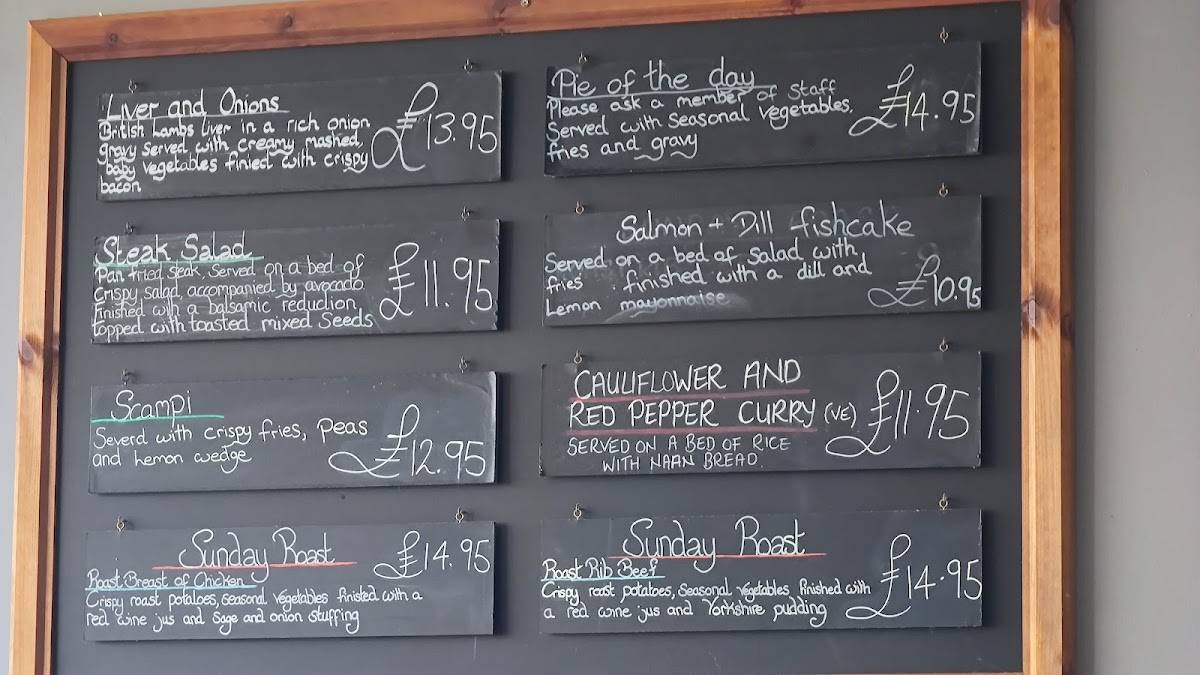 Liver and Onions
British Lambs liver in a rich onion
gravy served with creamy mashed,
baby vegetables finied with crispy
bacon
£13.95
Pie of the day
Please ask a member of staff
Served with seasonal vegetables,
fries and gravy
£14.95
Steak Salad
Pan fried steak, Served on a bed of
Crispy salad accompanied by avocado
Finished with a balsamic reduction
topped with toasted mixed Seeds
£11.95
Salmon + Dill fishcake
Served on a bed of salad with
fries . finished with a dill and
Lemon mayonnaise
£10.95
Scampi
Severd with crispy fries, Peas
and Lemon wedge
£12.95
CAULIFLOWER AND
RED PEPPER CURRY (VE)
SERVED ON A BED OF RICE
WITH NAAN BREAD.
£11.95
Sunday Roast
£14.95
Roast Breast of Chicken
Crispy roast potatoes, seasonal vegetables finisted with a
red wine jus and Sage and onion stuffing
Sunday Roast
Roast Rib Beef
Crispy roast potatoes, Seasonal vegetables, finished with
a red wine jus and Yorkshire pudding
£14.95